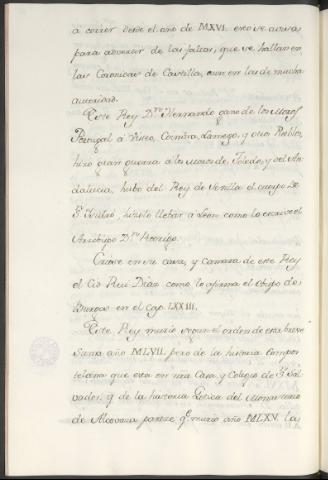 à correr desde el año de MXVI. esto se avisa,
para advertir de las faltas, que se hallan en
las Coronicas de Castilla, aun en las de mucha
autoridad.
Este Rey D.n Hernando gano de los Moros
Portugal à Viseo, Coimbra, Lamego, y otros Pueblos,
hizo gran guerra a los Moros de Toledo, y del An-
dalucia, hubo del Rey de Sevilla el cuerpo de
S.n Isidro, hizolo llebar a Leon como lo escrive el
Arzobispo D.n Rodrigo.
Criose en su casa, y camara de este Rey
el Cid Rui Diaz como lo afirma el Obispo de
Burgos en el Cap. LXXIII.
Este Rey murio segun el orden de esta breve
Suma año MLVII. pero de la historia Compos-
telana que esta en mi Casa, y Colegio de S.n Sal-
vador, y de la historia del Monasterio
de Alcobaza parece q.e murio año MLXV. la